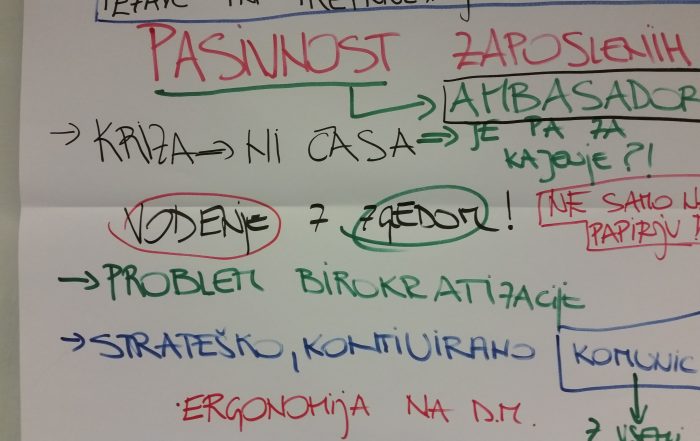 PASIVNOST ZAPOSLENIH
AMBASADOR
→ KRIZA ⇒ NI ČASA ⇒ JE PA ZA
KAJENJE?!
VODENJE Z ZGLEDOM!
NE SAMO N
PAPIRJU!
→ PROBLEM BIROKRATIZACIJE
→ STRATEŠKO, KONTIUIRANO KOMUNIC
Z VSEMI
·ERGONOMIJA NA D.M.